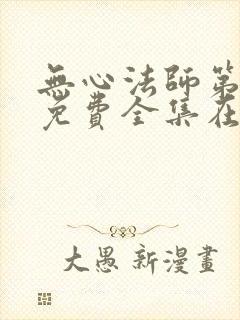 無心法師第
免費全集在
大愚新漫畫